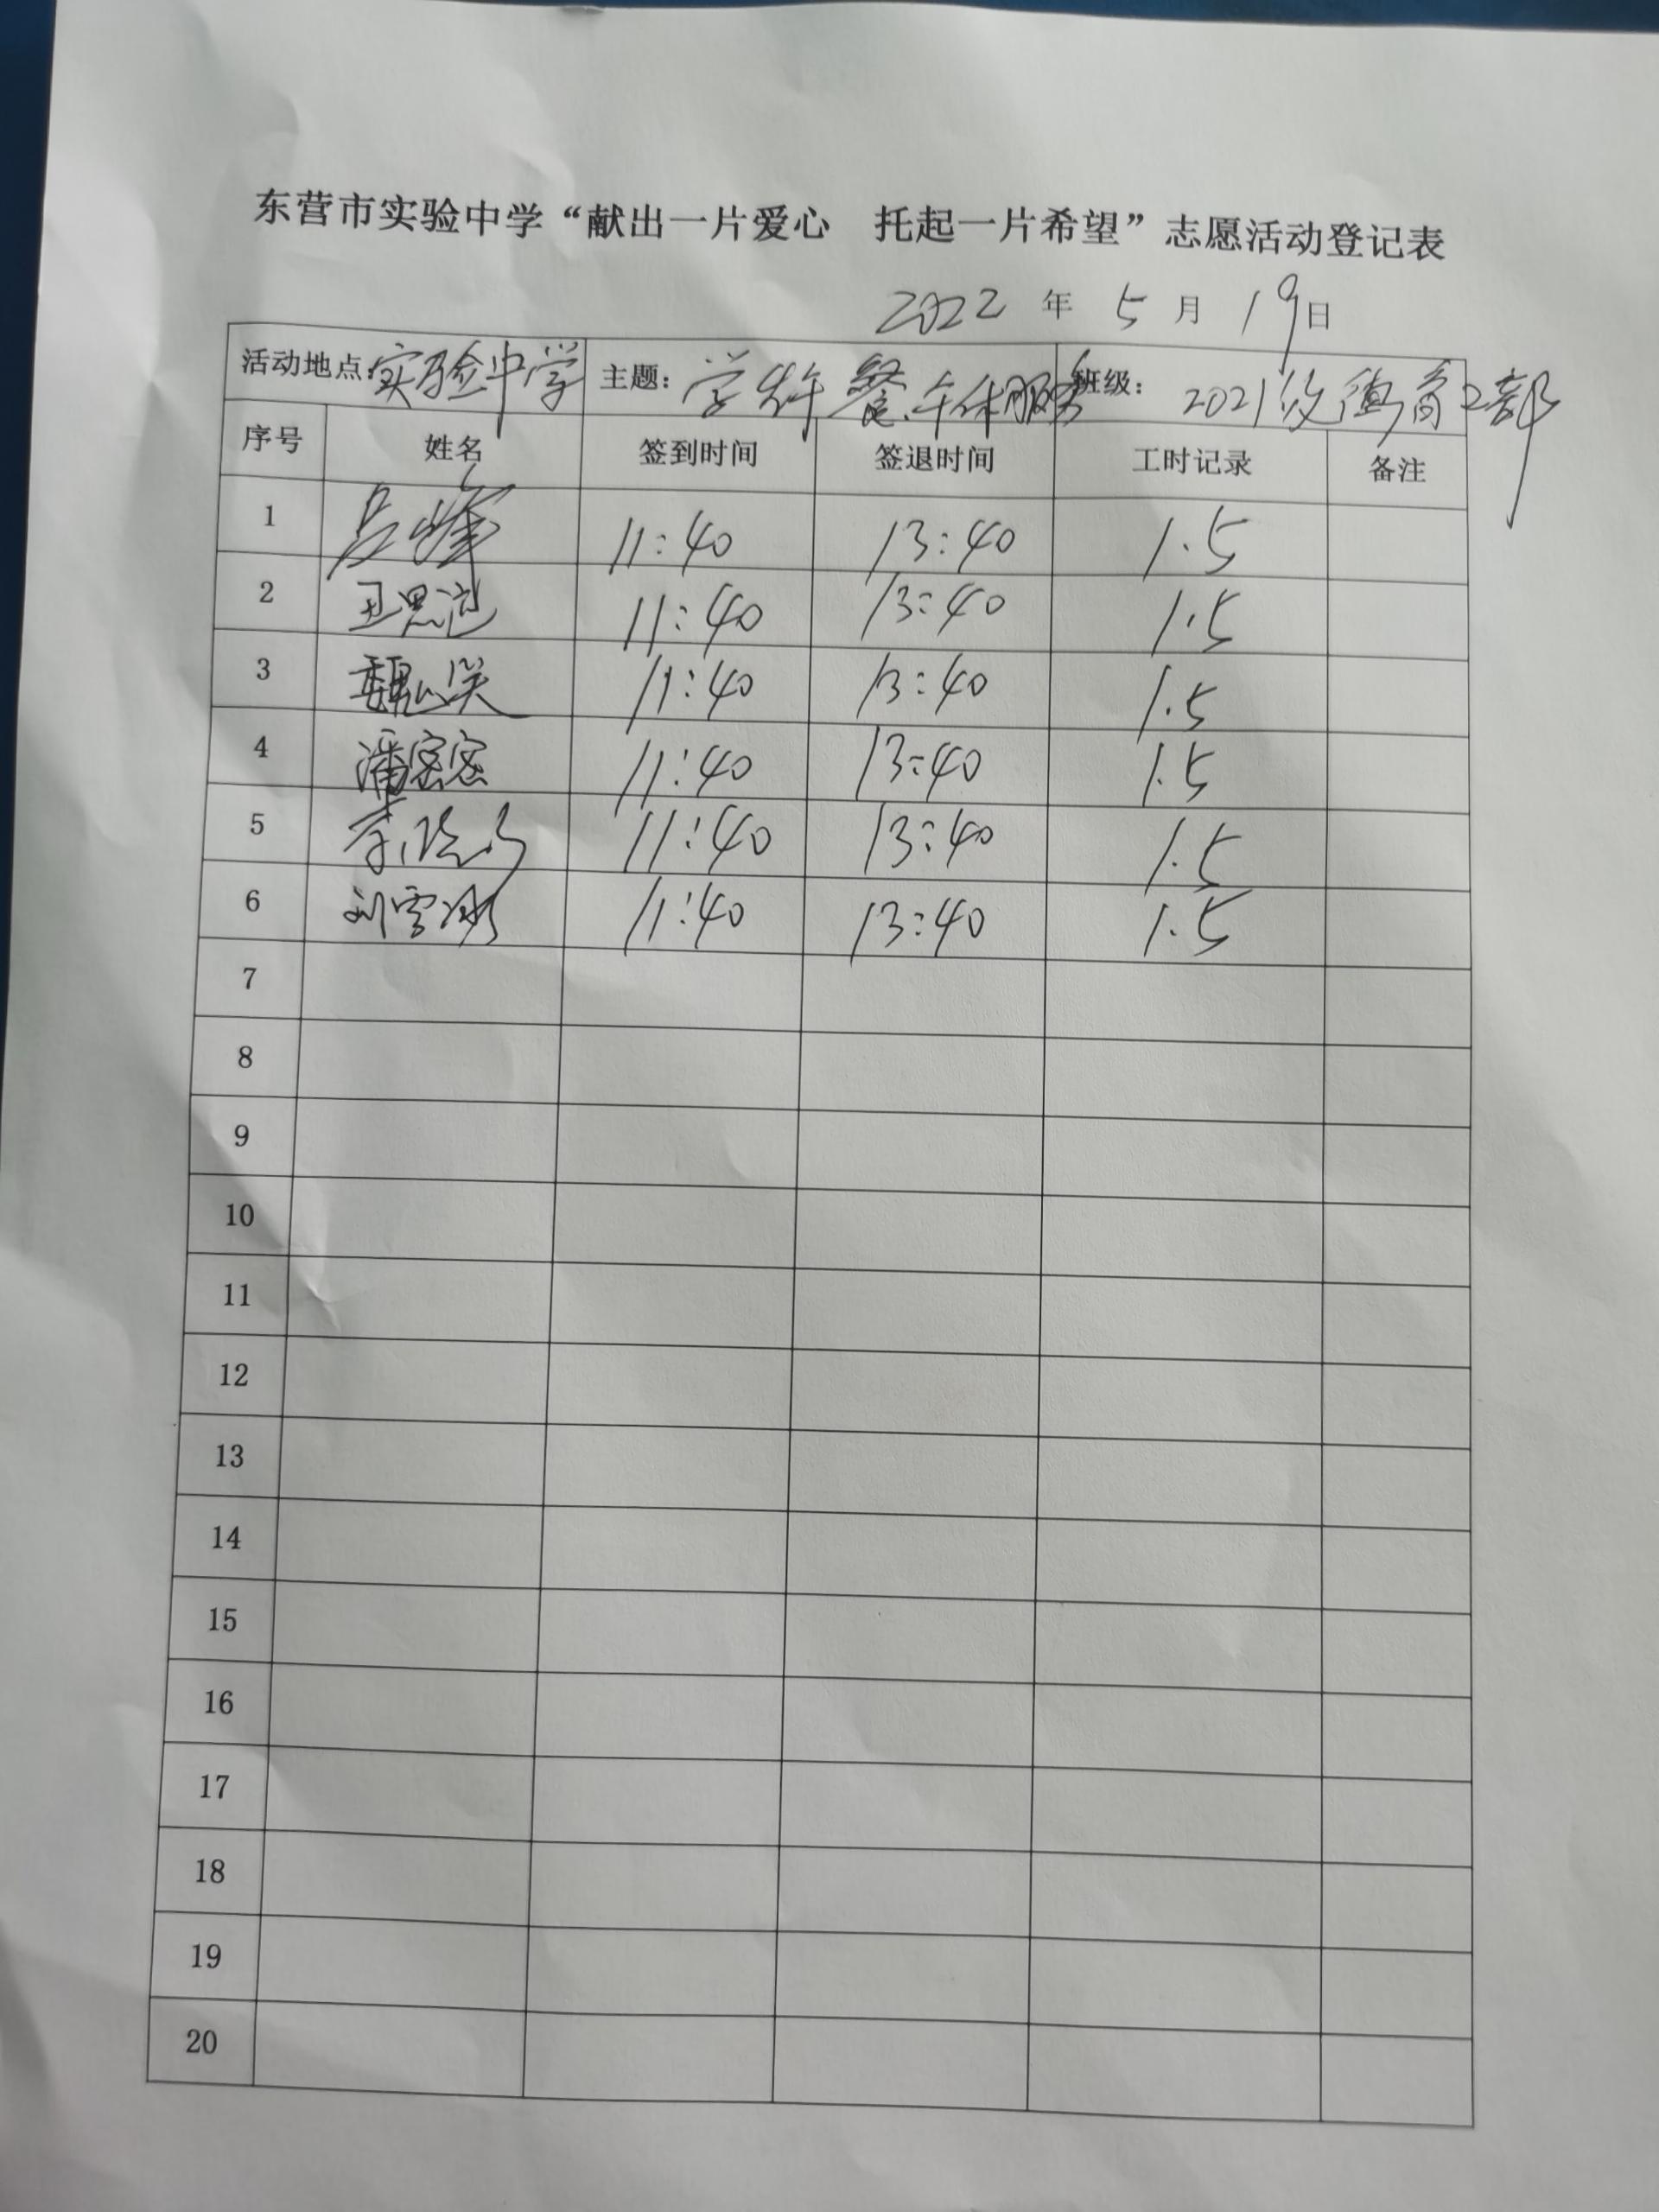 东营市实验中学“献出一片爱心 托起一片希望”志愿活动登记表
2022 年 5 月 19 日
活动地点：实验中学 主题：学生午餐、午休服务 班级：2021级德育2部
序号 姓名 签到时间 签退时间 工时记录 备注
1 吕峰 11:40 13:40 1.5
2 11:40 13:40 1.5
3 魏 11:40 13:40 1.5
4 潘密密 11:40 13:40 1.5
5 李 11:40 13:40 1.5
6 刘雪冰 11:40 13:40 1.5
7
8
9
10
11
12
13
14
15
16
17
18
19
20